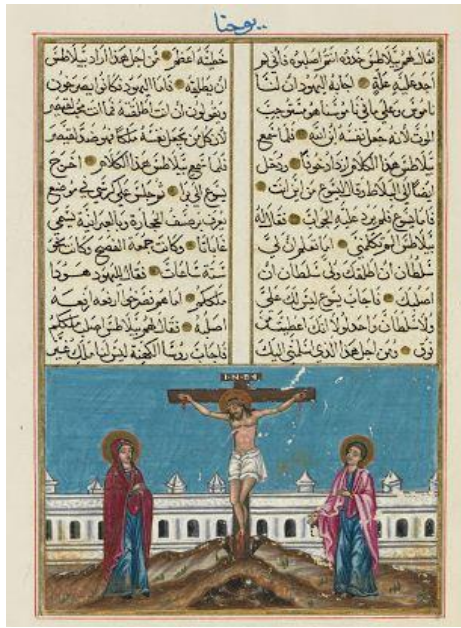 يوحنا
فقال لهم بيلاطس خذوه انتم اصلبوه فاني لم
اجد عليه علة اجابه اليهود ان لنا
ناموس وعلي ما في ناموسنا هو مستوجب
الموت لانه جعل نفسه ابن الله فلما سمع
بيلاطس هذا الكلام ازداد خوفا ودخل
ايضا الي قال ليسوع من اين انت
فاما يسوع فلم يرد عليه الجواب فقال له
بيلاطس الم تكلمني اما تعلم ان لي
سلطان ان اطلقك ولي سلطان ان
اصلبك فاجاب يسوع ليس لك علي
ولا سلطان واحد لولا انك اعطيت من
فوق ومن اجل هذا الذي اسلمني اليك
خطيته اعظم فمن اجل هذا اراد بيلاطس
ان يطلقه فاما اليهود فكانوا يصرخون
ويقولون ان انت اطلقته فما انت محب لقيصر
لان كل من يجعل نفسه ملكا فهو ضد لقيصر
فلما سمع بيلاطس هذا الكلام اخرج
يسوع الي برا ثم جلس علي كرسي في موضع
يعرف برصيف الحجارة وبالعبرانية يسمي
غاباثا وكانت جمعة الفصح وكانت نحو
ستة ساعات فقال لليهود هوذا
ملككم اما هم فصرخوا ارفعه ارفعه
اصلبه فقال لهم بيلاطس اصلب ملككم
فاجاب روسا الكهنة ليس لنا ملك غير